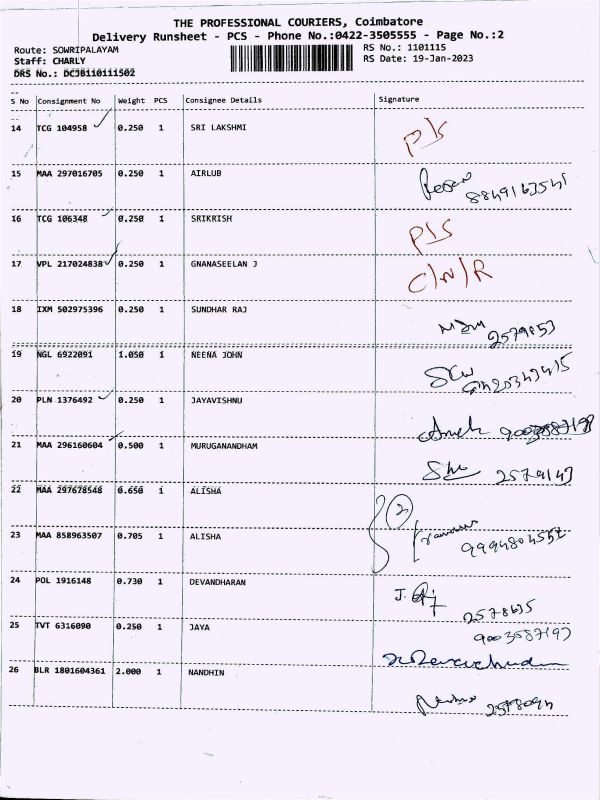 THE PROFESSIONAL COURIERS, Coimbatore
Delivery Runsheet - PCS - Phone No.:0422-3505555 - Page No.:2
Route: SOWRIPALAYAM RS No.: 1101115
Staff: CHARLY RS Date: 19-Jan-2023
DRS No.: DCJB110111502
S No Consignment No Weight PCS Consignee Details Signature
14 TCG 104958 0.250 1 SRI LAKSHMI P/S
15 MAA 297016705 0.250 1 AIRLUB
16 TCG 106348 0.250 1 SRIKRISH P/S
17 VPL 217024838 0.250 1 GNANASEELAN J C/N/R
18 IXM 502975396 0.250 1 SUNDHAR RAJ
19 NGL 6922091 1.050 1 NEENA JOHN
20 PLN 1376492 0.250 1 JAYAVISHNU
21 MAA 296160604 0.500 1 MURUGANANDHAM
22 MAA 297678548 0.650 1 ALISHA 2
23 MAA 858963507 0.705 1 ALISHA 9994804552
24 POL 1916148 0.730 1 DEVANDHARAN
25 TVT 6316090 0.250 1 JAYA 9003587197
26 BLR 1801604361 2.000 1 NANDHIN